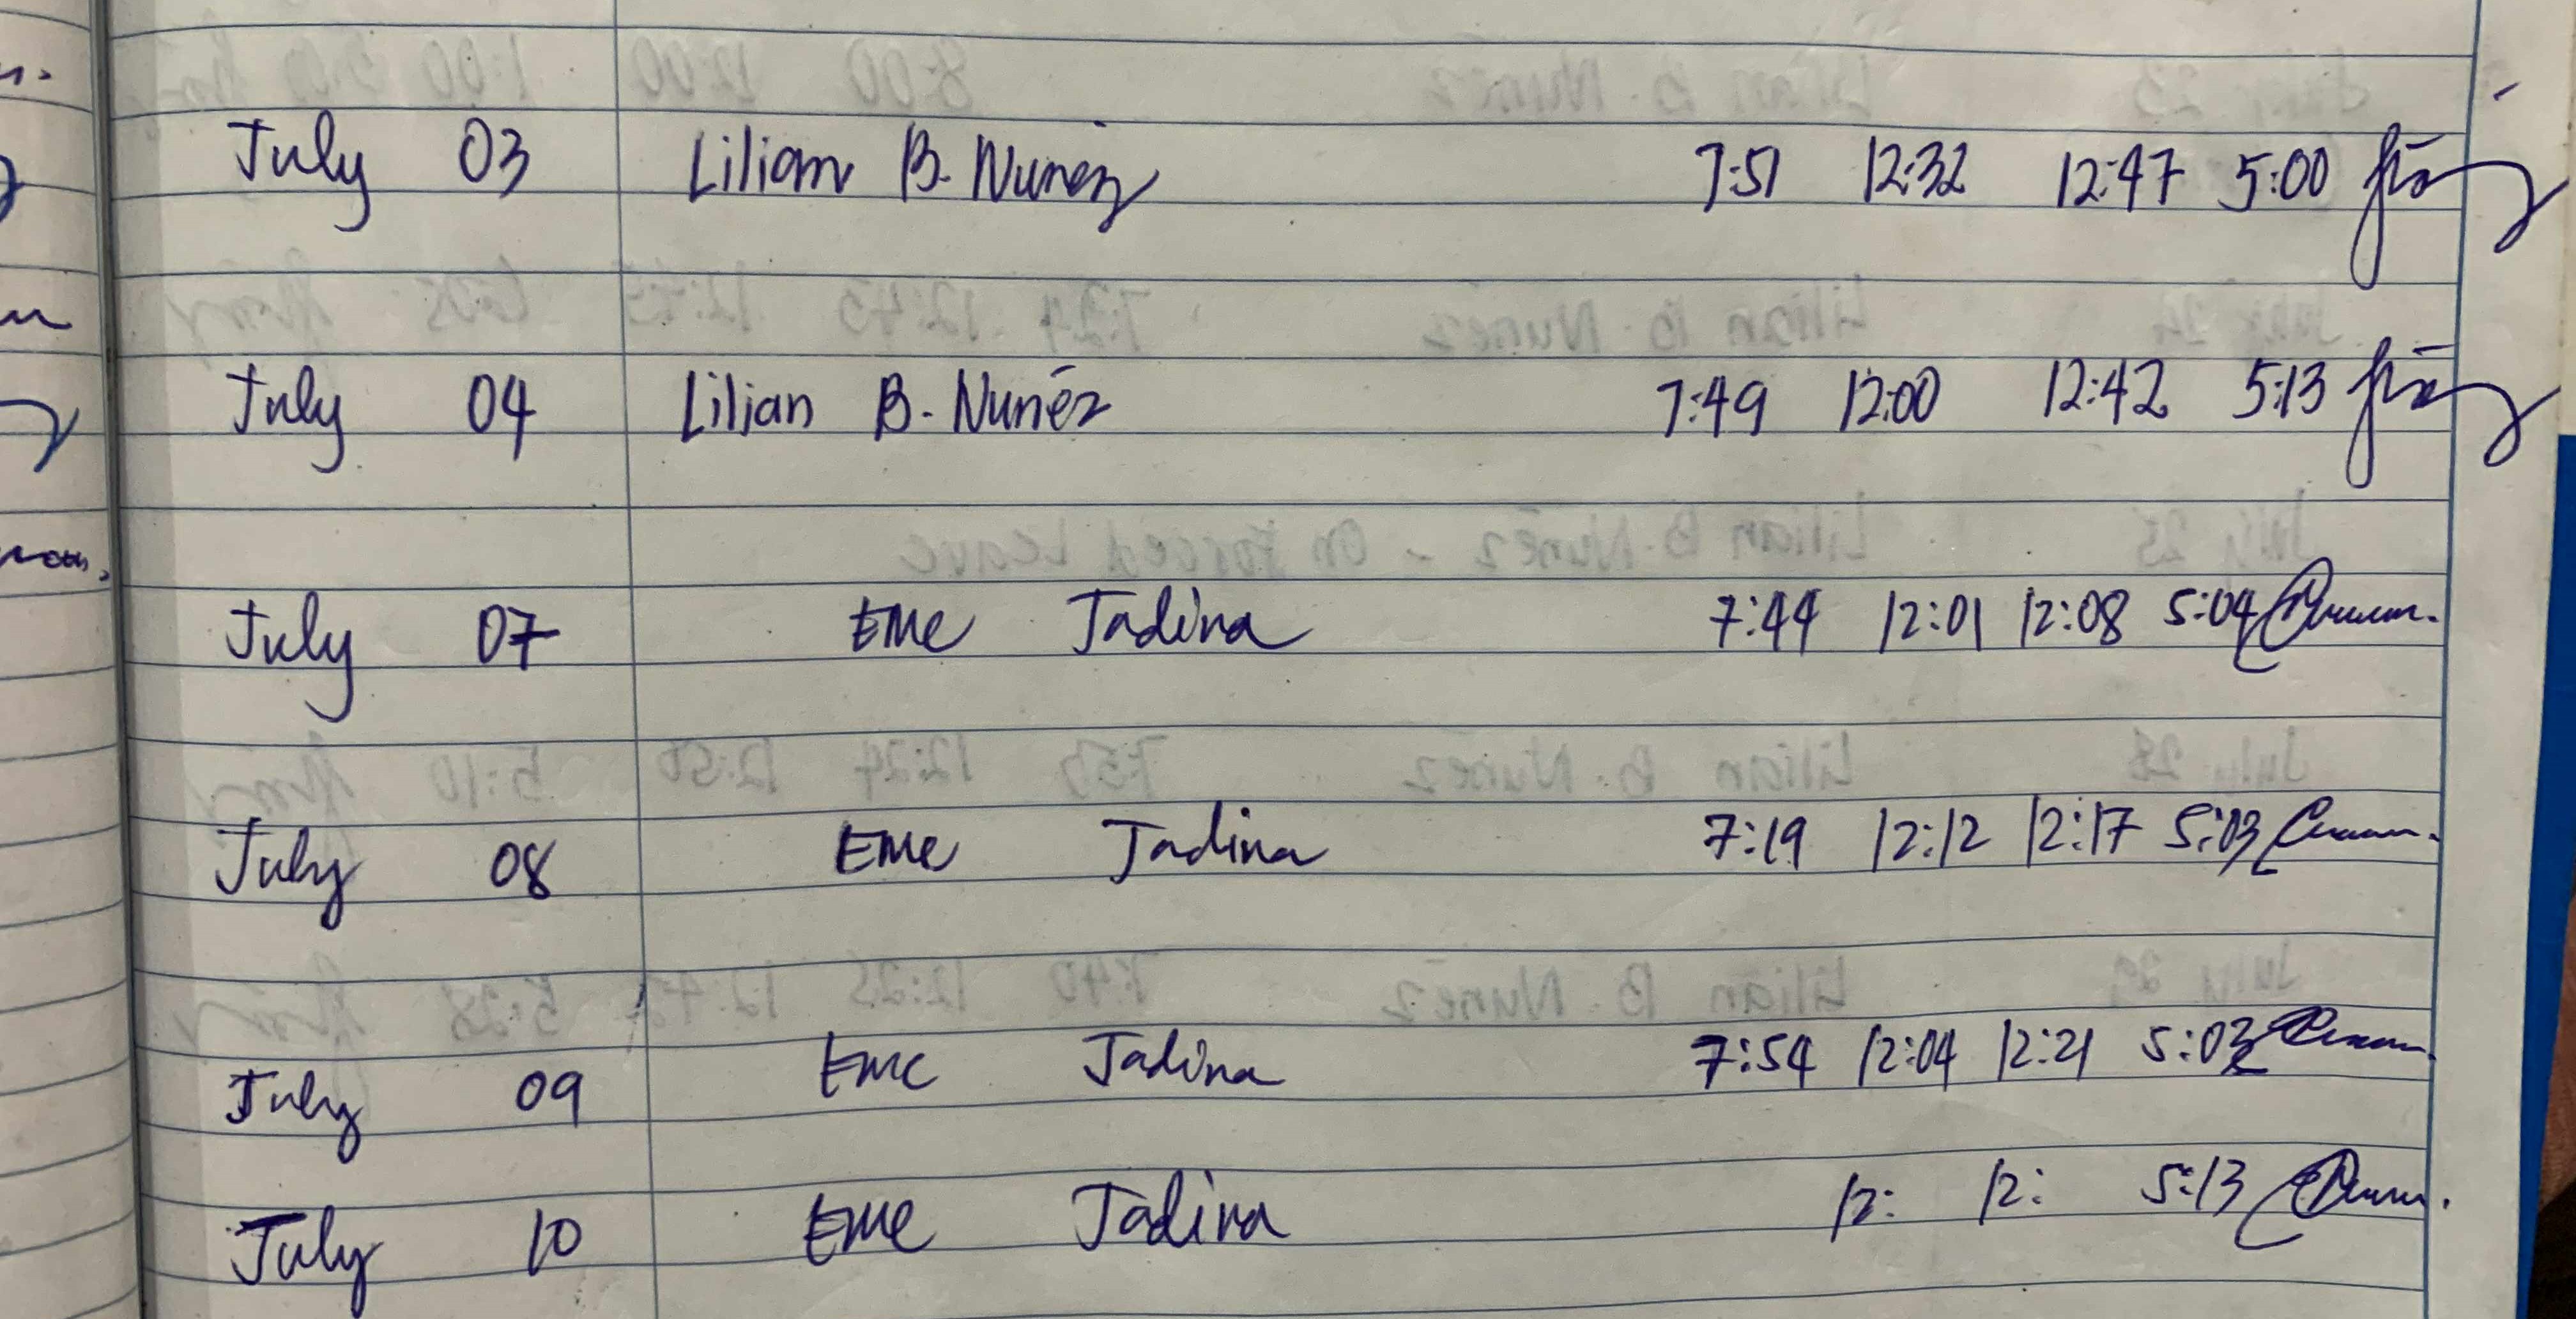 July 03 Lilian B. Nuñez 7:51 12:32 12:47 5:00
July 04 Lilian B. Nuñez 7:49 12:00 12:42 5:13
July 07 Eme Jadina 7:44 12:01 12:08 5:04
July 08 Eme Jadina 7:19 12:12 12:17 5:03
July 09 Eme Jadina 7:54 12:04 12:21 5:02
July 10 Eme Jadina 12: 12: 5:13